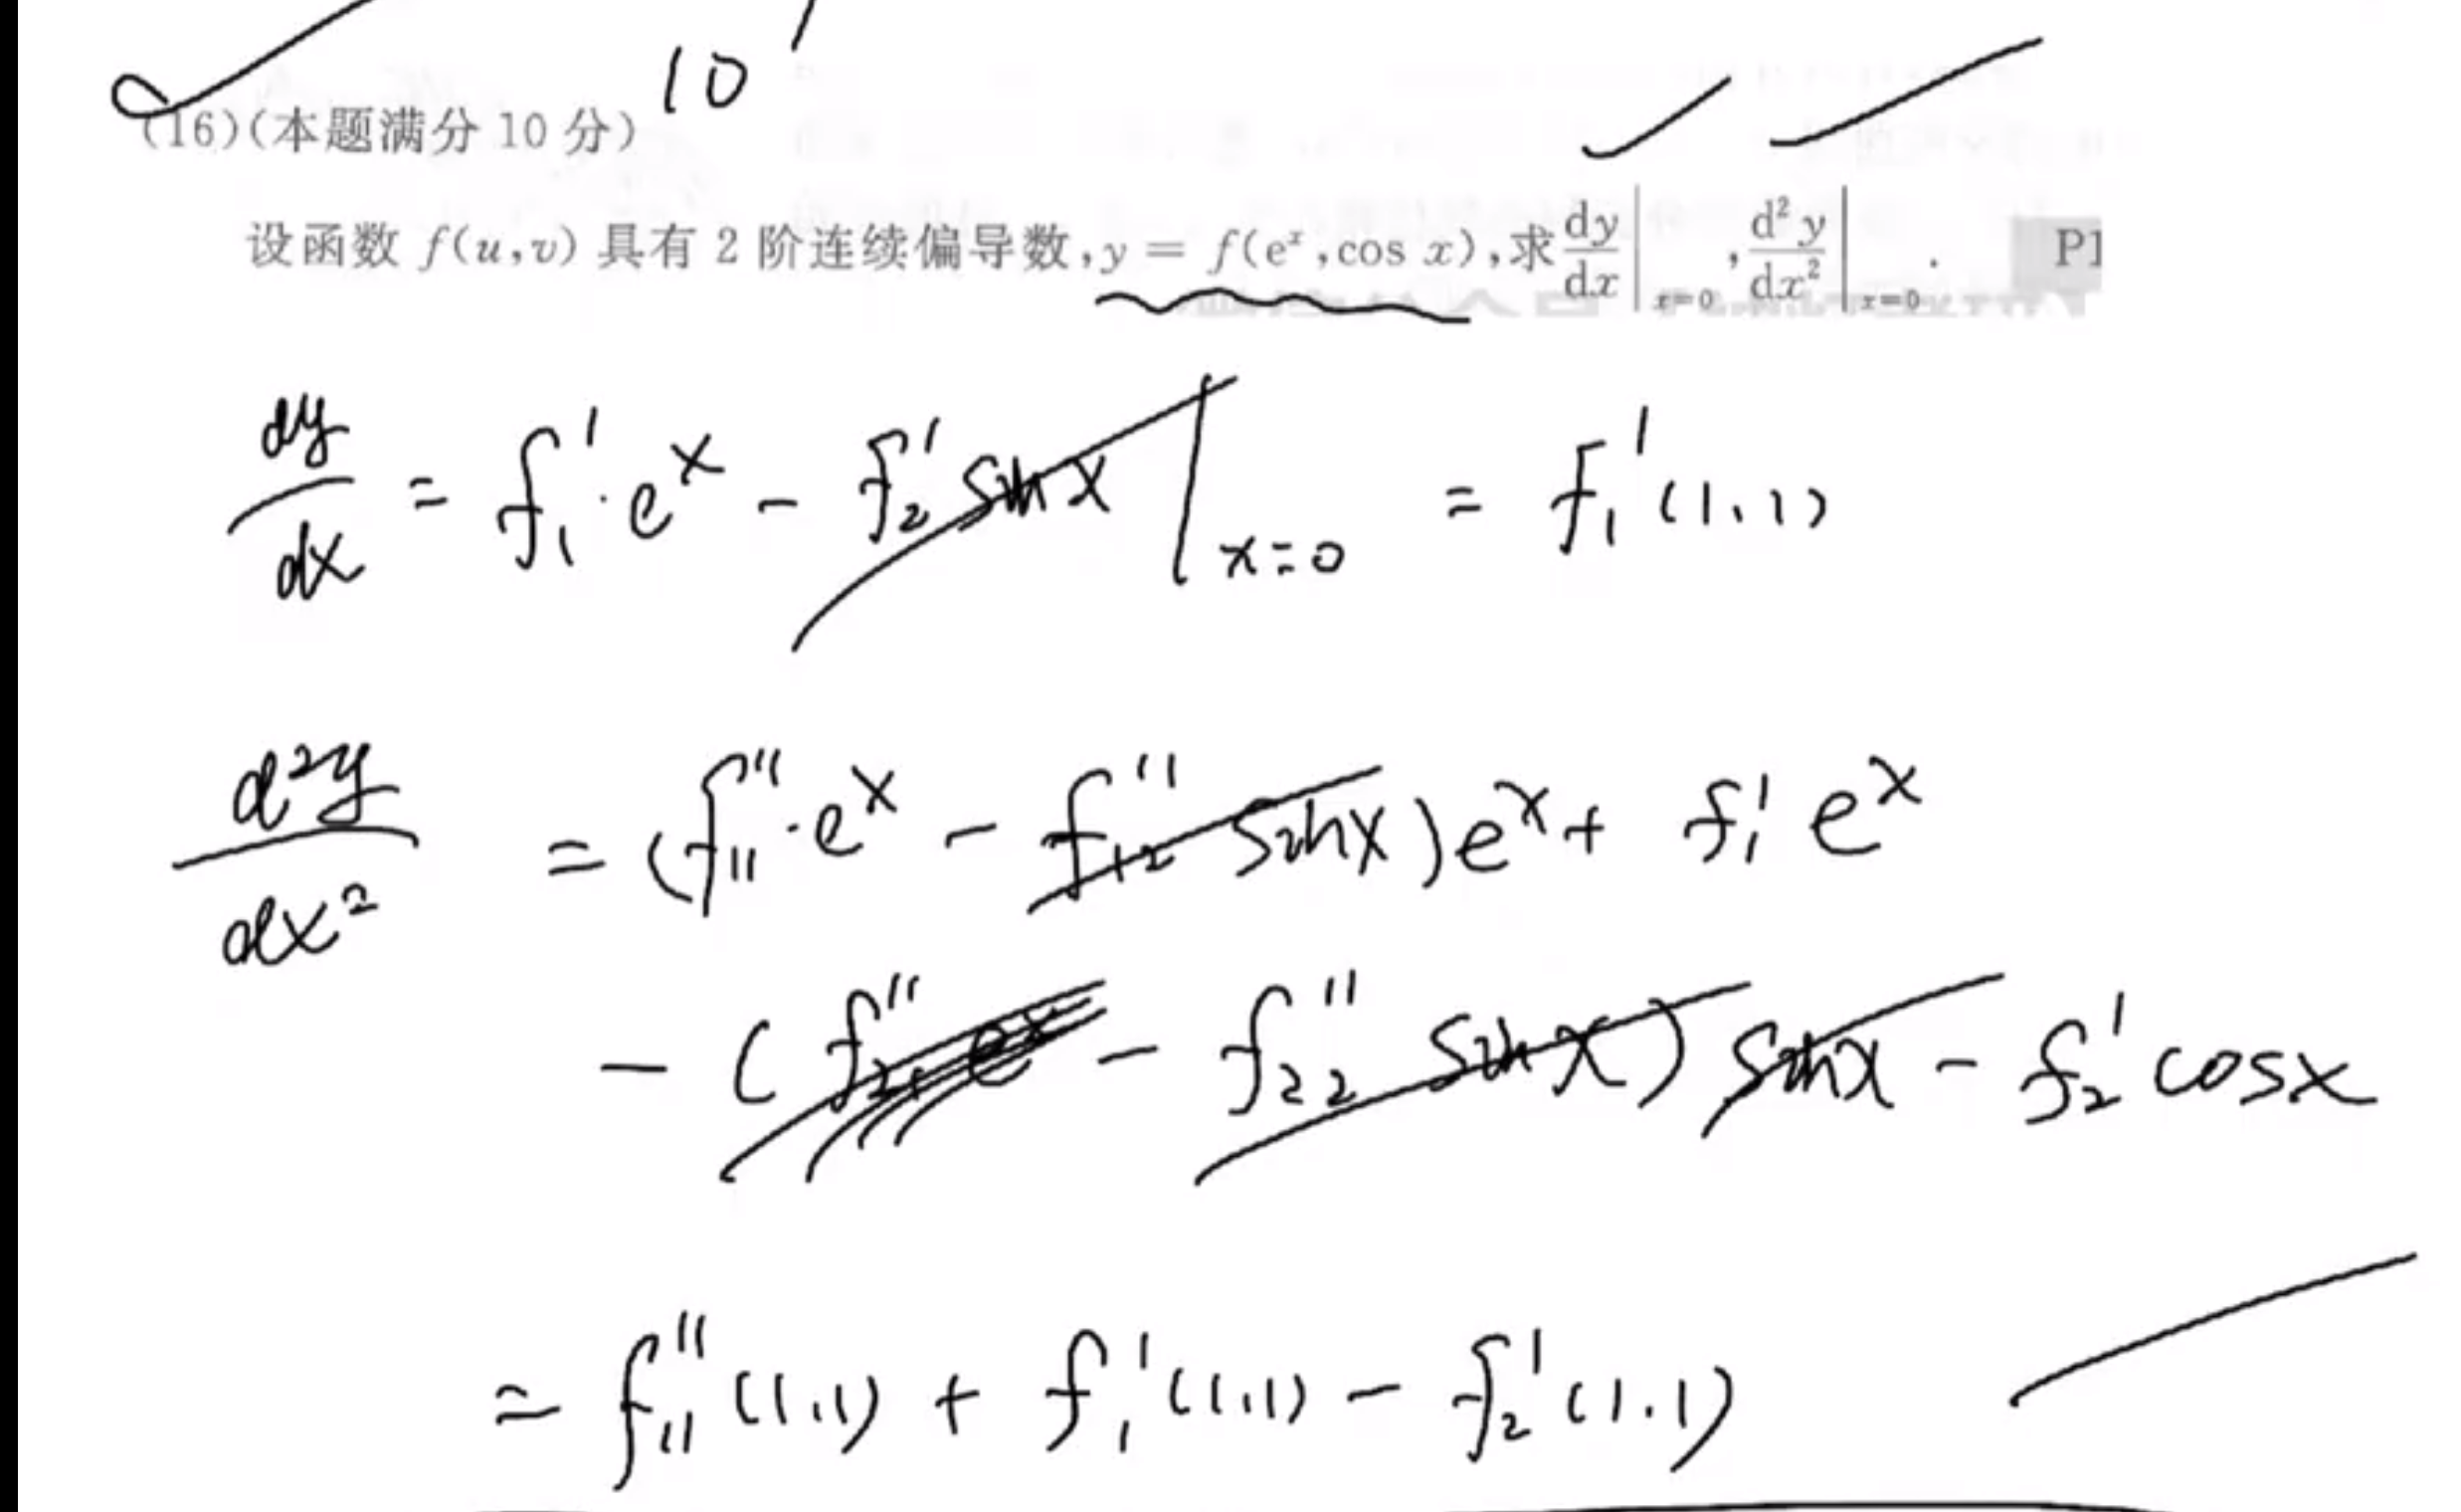 10
(16)(本题满分 10 分)
设函数 f(u,v) 具有 2 阶连续偏导数,y = f(eˣ,cos x),求 dy/dx|ₓ₌₀, d²y/dx²|ₓ₌₀. P1
dy/dx = f₁′·eˣ - f₂′ sin x |ₓ₌₀ = f₁′(1,1)
d²y/dx² = (f₁₁″·eˣ - f₁₂″ sin x)eˣ + f₁′ eˣ
- (f₂₁″ eˣ - f₂₂″ sin x) sin x - f₂′ cos x
= f₁₁″(1,1) + f₁′(1,1) - f₂′(1,1)